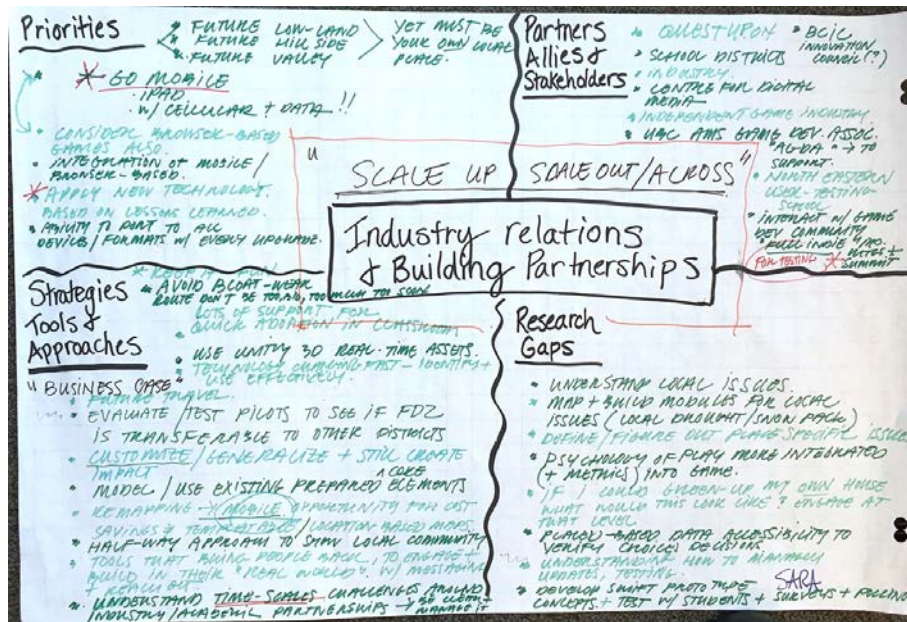 Priorities
* FUTURE LOW-LAND
* FUTURE HILL SIDE
* FUTURE VALLEY
YET MUST BE
YOUR OWN LOCAL
PLACE.
* GO MOBILE
· iPAD
· w/ CELLULAR + DATA !!
* CONSIDER BROWSER-BASED
GAMES ALSO.
* INTEGRATION OF MOBILE/
BROWSER-BASED.
* APPLY NEW TECHNOLOGY.
BASED ON LESSONS LEARNED.
* ABILITY TO PORT TO ALL
DEVICES/FORMATS w/ EVERY UPGRADE.
Partners
Allies &
Stakeholders
* QUEST UPON
* BCIC
INNOVATION
COUNCIL(?)
* SCHOOL DISTRICTS
* INDUSTRY.
* CENTRE FOR DIGITAL
MEDIA
* INDEPENDENT GAME INDUSTRY
* UBC AMS GAME DEV. ASSOC.
"AGDA" → TO
SUPPORT.
* NORTH EASTERN
USER-TESTING-
SCHOOL
* INTERACT w/ GAME
DEV COMMUNITY
"FULL INDIE"
SUMMIT
FOR TESTING *
"SCALE UP SCALE OUT/ACROSS"
Industry relations
& Building Partnerships
Strategies
Tools &
Approaches
* KEEP IT FUN
* AVOID BLOAT-WEAR
LOTS OF SUPPORT FOR
QUICK ADOPTION IN CLASSROOM
* USE UNITY 3D REAL-TIME ASSETS.
* TECHNOLOGY CHANGING FAST - IDENTIFY +
USE EFFECTIVELY.
"BUSINESS CASE"
* FUTURE TRAVEL.
* EVALUATE/TEST PILOTS TO SEE IF
IS TRANSFERABLE TO OTHER DISTRICTS
* CUSTOMIZE/GENERALIZE + STILL CREATE
IMPACT
* MODEL/USE EXISTING PREPARED ^CORE ELEMENTS
* REMAPPING → MOBILE OPPORTUNITY FOR COST
SAVINGS /LOCATION BASED MODS.
* HALF-WAY APPROACH TO SHOW LOCAL COMMUNITY
* TOOLS THAT BRING PEOPLE BACK, TO ENGAGE +
BUILD IN THEIR "REAL WORLD" w/ MESSAGING
* UNDERSTAND TIME-SCALES CHALLENGES AROUND
INDUSTRY/ACADEMIC PARTNERSHIPS → BE CLEAR +
MANAGE IT
Research
Gaps
* UNDERSTAND LOCAL ISSUES.
* MAP + BUILD MODULES FOR LOCAL
ISSUES (LOCAL DROUGHT/SNOW PACK)
* DEFINE/FIGURE OUT PLACE SPECIFIC ISSUES
* PSYCHOLOGY OF PLAY MORE INTEGRATED
(+ METRICS) INTO GAME.
* IF I COULD GREEN-UP MY OWN HOUSE
WHAT WOULD THIS LOOK LIKE? ENGAGE AT
THAT LEVEL
* PLACED-BASED DATA ACCESSIBILITY TO
VERIFY CHOICES DECISIONS.
* UNDERSTANDING HOW TO MANAGE
UPDATES, TESTING.
* DEVELOP SWIFT PROTOTYPE
CONCEPTS + TEST w/ STUDENTS + SURVEYS + POLLING
SARA